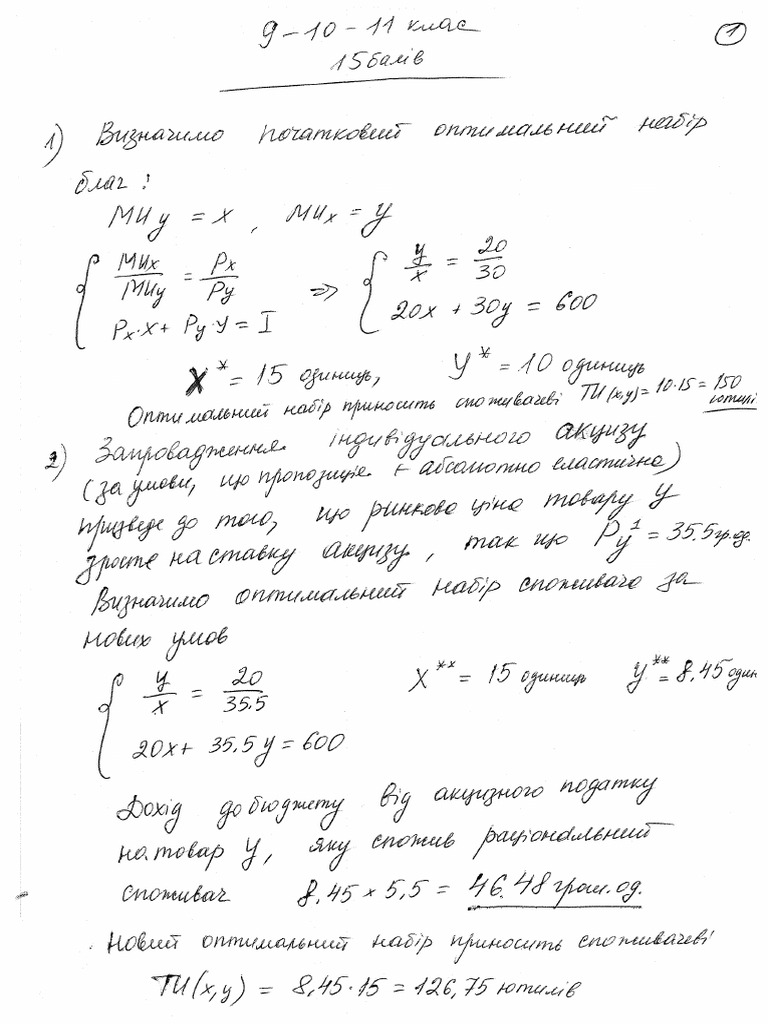 9 – 10 – 11 клас
1
15 балів
1) Визначимо початковий оптимальний набір
благ:
MUy = x, MUx = y
{ MUx/MUy = Px/Py ⇒ { y/x = 20/30
Px·x + Py·y = I 20x + 30y = 600
X* = 15 одиниць, Y* = 10 одиниць
Оптимальний набір приносить споживачеві TU(x,y) = 10·15 = 150
ютилів
2) Запровадження індивідуального акцизу
(за умови, що пропозиція є абсолютно еластична)
призведе до того, що ринкова ціна товару Y
зросте на ставку акцизу, так що Py¹ = 35.5 гр.од.
Визначимо оптимальний набір споживача за
нових умов
{ y/x = 20/35.5 X** = 15 одиниць y** = 8,45 один
20x + 35,5y = 600
Дохід до бюджету від акцизного податку
на товар Y, яку спожив раціональний
споживач 8,45 × 5,5 = 46.48 грош.од.
Новий оптимальний набір приносить споживачеві
TU(x,y) = 8,45·15 = 126,75 ютилів